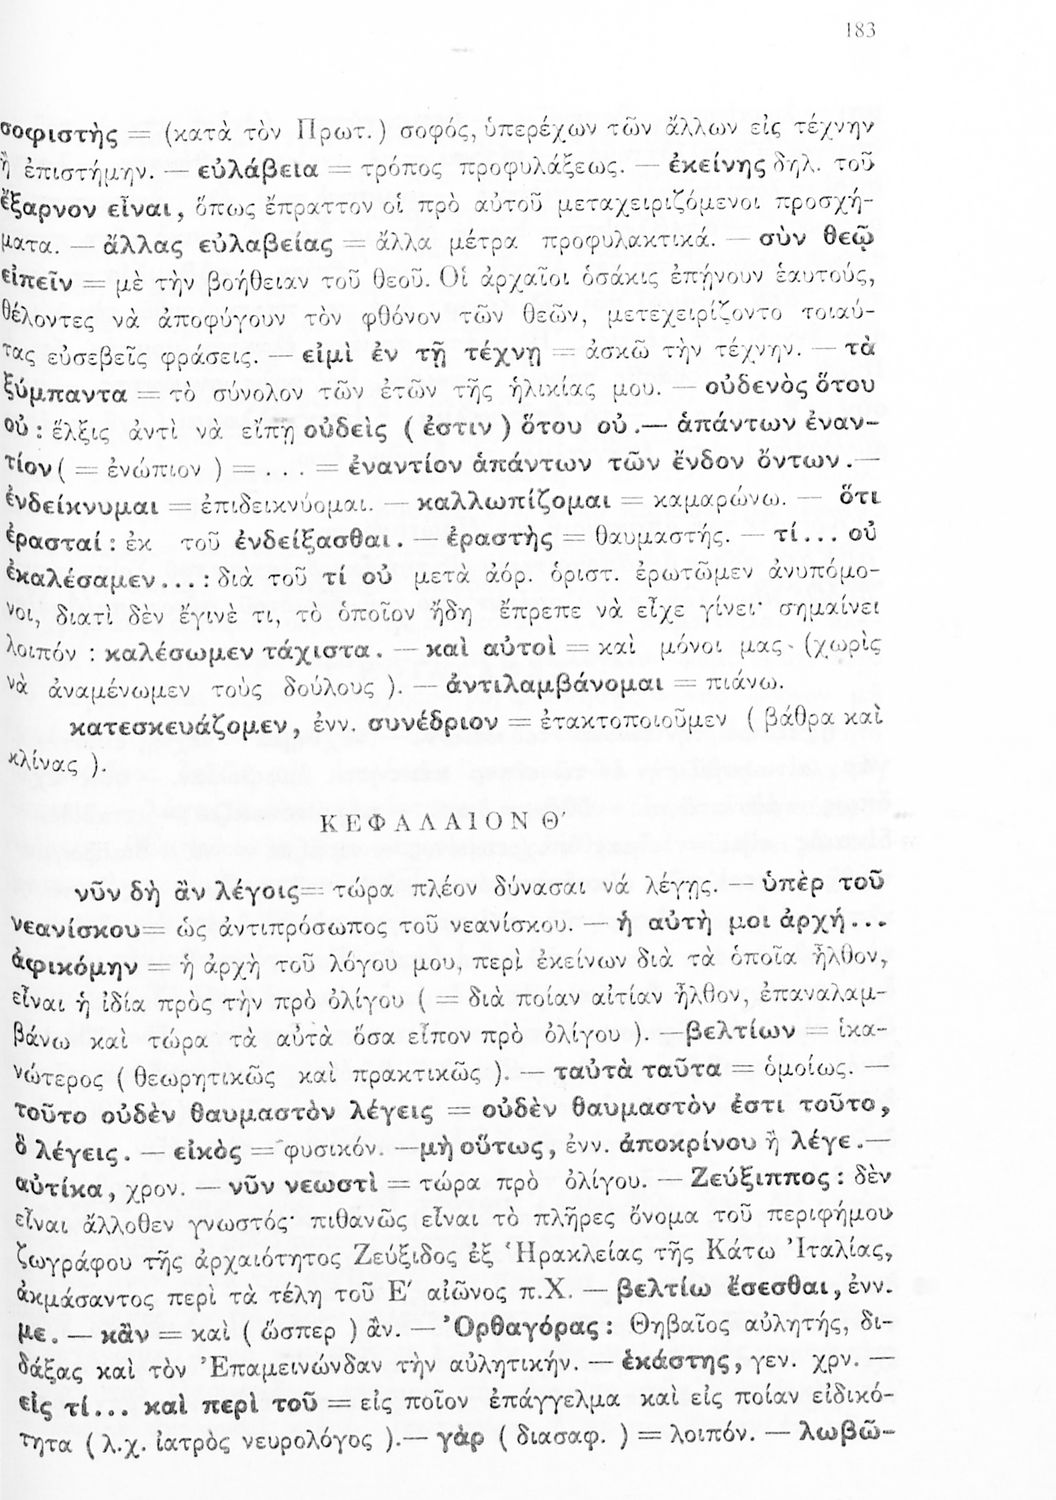 183
σοφιστὴς = (κατὰ τὸν Πρωτ.) σοφός, ὑπερέχων τῶν ἄλλων εἰς τέχνην
ἢ ἐπιστήμην. — εὐλάβεια = τρόπος προφυλάξεως. — ἐκείνης δηλ. τοῦ
ἔξαρνον εἶναι, ὅπως ἔπραττον οἱ πρὸ αὐτοῦ μεταχειριζόμενοι προσχή-
ματα. — ἄλλας εὐλαβείας = ἄλλα μέτρα προφυλακτικά. — σὺν θεῷ
εἰπεῖν = μὲ τὴν βοήθειαν τοῦ θεοῦ. Οἱ ἀρχαῖοι ὁσάκις ἐπῄνουν ἑαυτούς,
θέλοντες νὰ ἀποφύγουν τὸν φθόνον τῶν θεῶν, μετεχειρίζοντο τοιαύ-
τας εὐσεβεῖς φράσεις. — εἰμὶ ἐν τῇ τέχνῃ = ἀσκῶ τὴν τέχνην. — τὰ
ξύμπαντα = τὸ σύνολον τῶν ἐτῶν τῆς ἡλικίας μου. — οὐδενὸς ὅτου
οὐ : ἕλξις ἀντὶ νὰ εἴπῃ οὐδεὶς ( ἐστιν ) ὅτου οὐ.— ἁπάντων ἐναν-
τίον ( = ἐνώπιον ) = ... = ἐναντίον ἁπάντων τῶν ἔνδον ὄντων.—
ἐνδείκνυμαι = ἐπιδεικνύομαι. — καλλωπίζομαι = καμαρώνω. — ὅτι
ἐρασταί : ἐκ τοῦ ἐνδείξασθαι. — ἐραστὴς = θαυμαστής. — τί... οὐ
ἐκαλέσαμεν...: διὰ τοῦ τί οὐ μετὰ ἀόρ. ὁριστ. ἐρωτῶμεν ἀνυπόμο-
νοι, διατὶ δὲν ἔγινέ τι, τὸ ὁποῖον ἤδη ἔπρεπε νὰ εἶχε γίνει· σημαίνει
λοιπόν : καλέσωμεν τάχιστα. — καὶ αὐτοὶ = καὶ μόνοι μας (χωρὶς
νὰ ἀναμένωμεν τοὺς δούλους ). — ἀντιλαμβάνομαι = πιάνω.
κατεσκευάζομεν, ἐνν. συνέδριον = ἐτακτοποιοῦμεν ( βάθρα καὶ
κλίνας ).
ΚΕΦΑΛΑΙΟΝ Θ′
νῦν δὴ ἂν λέγοις = τώρα πλέον δύνασαι νά λέγῃς. — ὑπὲρ τοῦ
νεανίσκου = ὡς ἀντιπρόσωπος τοῦ νεανίσκου. — ἡ αὐτή μοι ἀρχή...
ἀφικόμην = ἡ ἀρχὴ τοῦ λόγου μου, περὶ ἐκείνων διὰ τὰ ὁποῖα ἦλθον,
εἶναι ἡ ἰδία πρὸς τὴν πρὸ ὀλίγου ( = διὰ ποίαν αἰτίαν ἦλθον, ἐπαναλαμ-
βάνω καὶ τώρα τὰ αὐτὰ ὅσα εἶπον πρὸ ὀλίγου ). —βελτίων = ἱκα-
νώτερος ( θεωρητικῶς καὶ πρακτικῶς ). — ταὐτὰ ταῦτα = ὁμοίως. —
τοῦτο οὐδὲν θαυμαστὸν λέγεις = οὐδὲν θαυμαστὸν ἐστι τοῦτο,
ὃ λέγεις. — εἰκὸς = φυσικόν. —μὴ οὕτως, ἐνν. ἀποκρίνου ἢ λέγε.—
αὐτίκα, χρον. — νῦν νεωστὶ = τώρα πρὸ ὀλίγου. — Ζεύξιππος : δὲν
εἶναι ἄλλοθεν γνωστός· πιθανῶς εἶναι τὸ πλῆρες ὄνομα τοῦ περιφήμου
ζωγράφου τῆς ἀρχαιότητος Ζεύξιδος ἐξ Ἡρακλείας τῆς Κάτω Ἰταλίας,
ἀκμάσαντος περὶ τὰ τέλη τοῦ Ε′ αἰῶνος π.Χ. — βελτίω ἔσεσθαι, ἐνν.
με. — κἂν = καὶ ( ὥσπερ ) ἄν. — Ὀρθαγόρας : Θηβαῖος αὐλητής, δι-
δάξας καὶ τὸν Ἐπαμεινώνδαν τὴν αὐλητικήν. — ἑκάστης, γεν. χρν. —
εἰς τί... καὶ περὶ τοῦ = εἰς ποῖον ἐπάγγελμα καὶ εἰς ποίαν εἰδικό-
τητα ( λ.χ. ἰατρὸς νευρολόγος ).— γὰρ ( διασαφ. ) = λοιπόν. — λωβῶ-